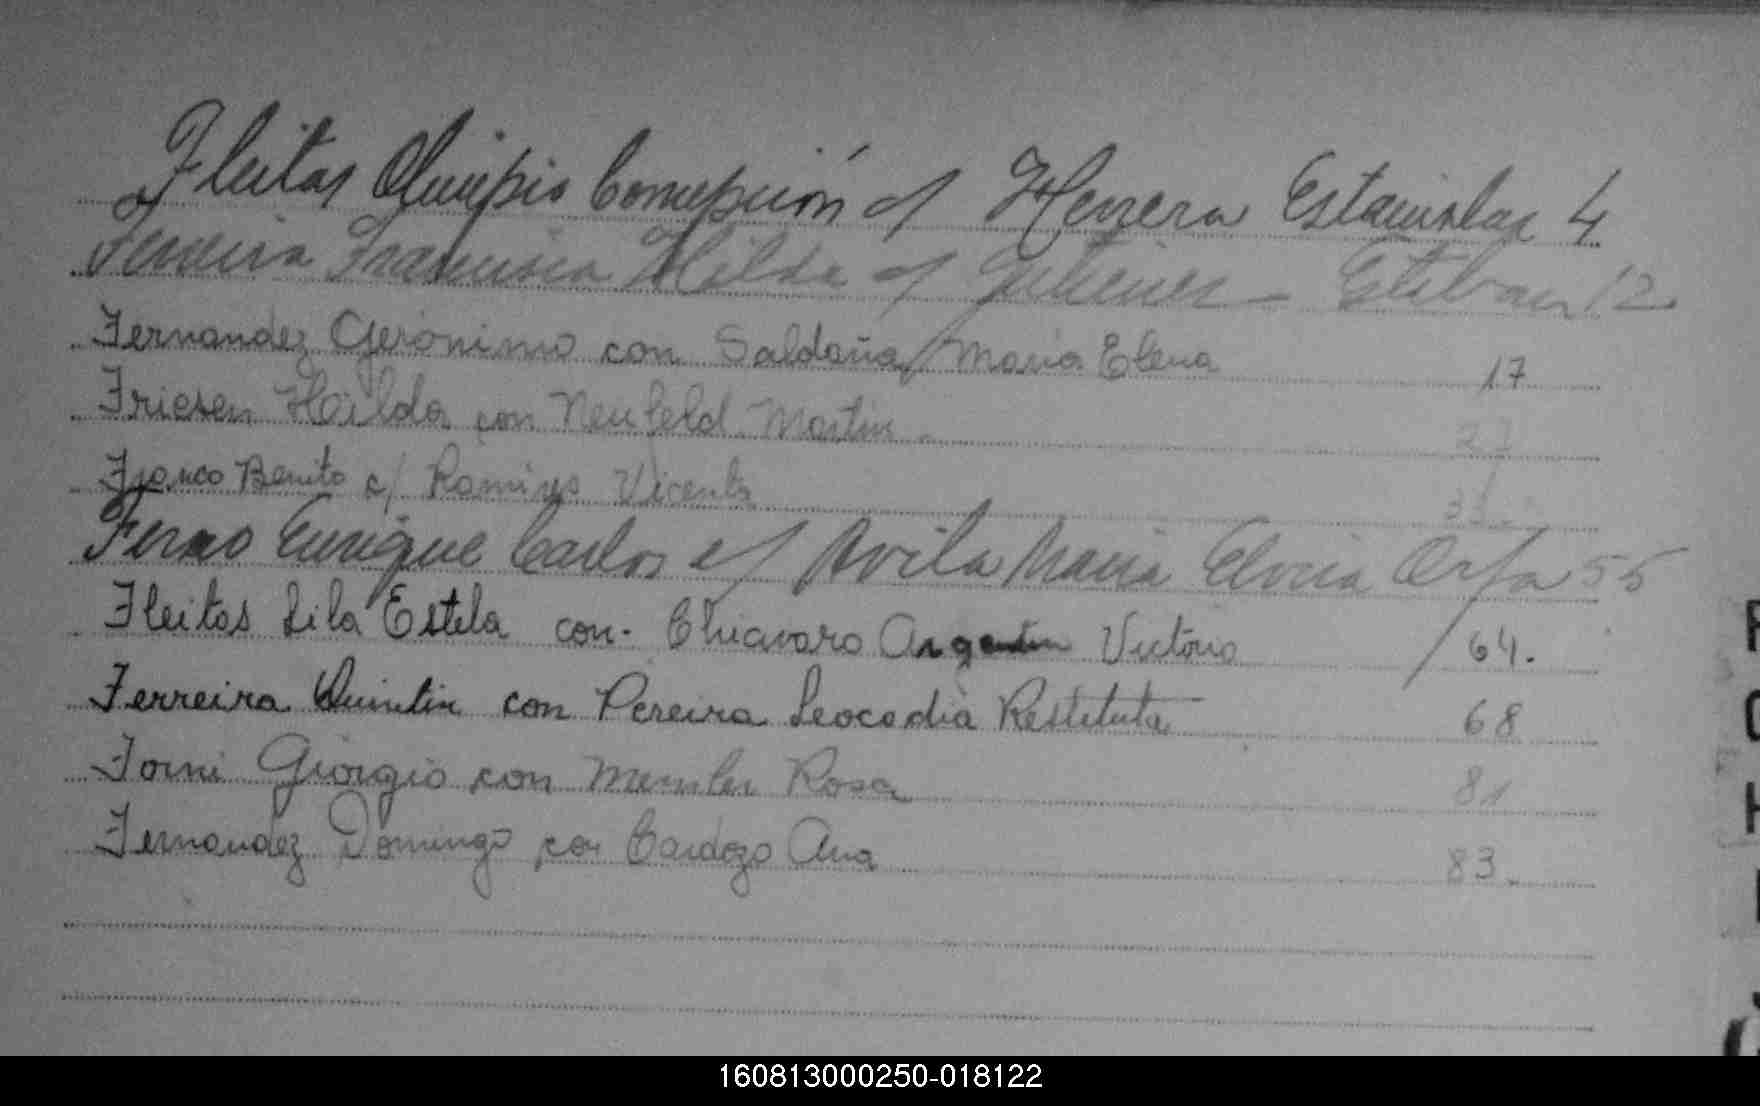 Fleitas Olimpio Concepción c/ Herrera Estanislaa 4
Ferreira Francisca Hilda c/ Gutierrez - Esteban 12
Fernandez Gerónimo con Saldaña Maria Elena 17
Friesen Heilda con Neufeld Martin - 27
Franco Benito c/ Ramirez Vicenta
Ferro Enrique Carlos c/ Avila Maria Elvira Orfa 55
Fleitas Lila Estela con. Chiavaro Argentin Victorio / 64.
Ferreira Quintin con Pereira Leocadia Restituta 68
Forni Giorgio con Rosa 81
Fernandez Domingo con Cardozo Ana 83.
160813000250-018122